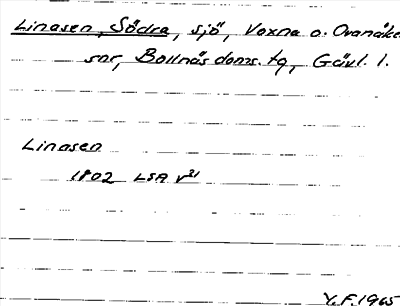 Linasen, Södra, sjö, Voxna o. Ovanåke
snr, Bollnäs doms. tg, Gävl. l.
Linasen
1802 LSA V21
Y.F. 1965